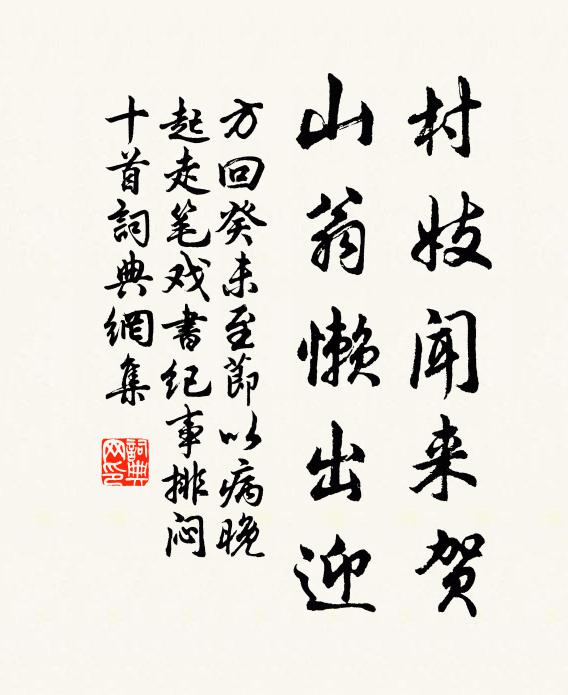 村妓闻来贺
山翁懒出迎
方回癸未至節以病晚
起走笔戏書纪事排闷
十首詞典網集
詞典網印